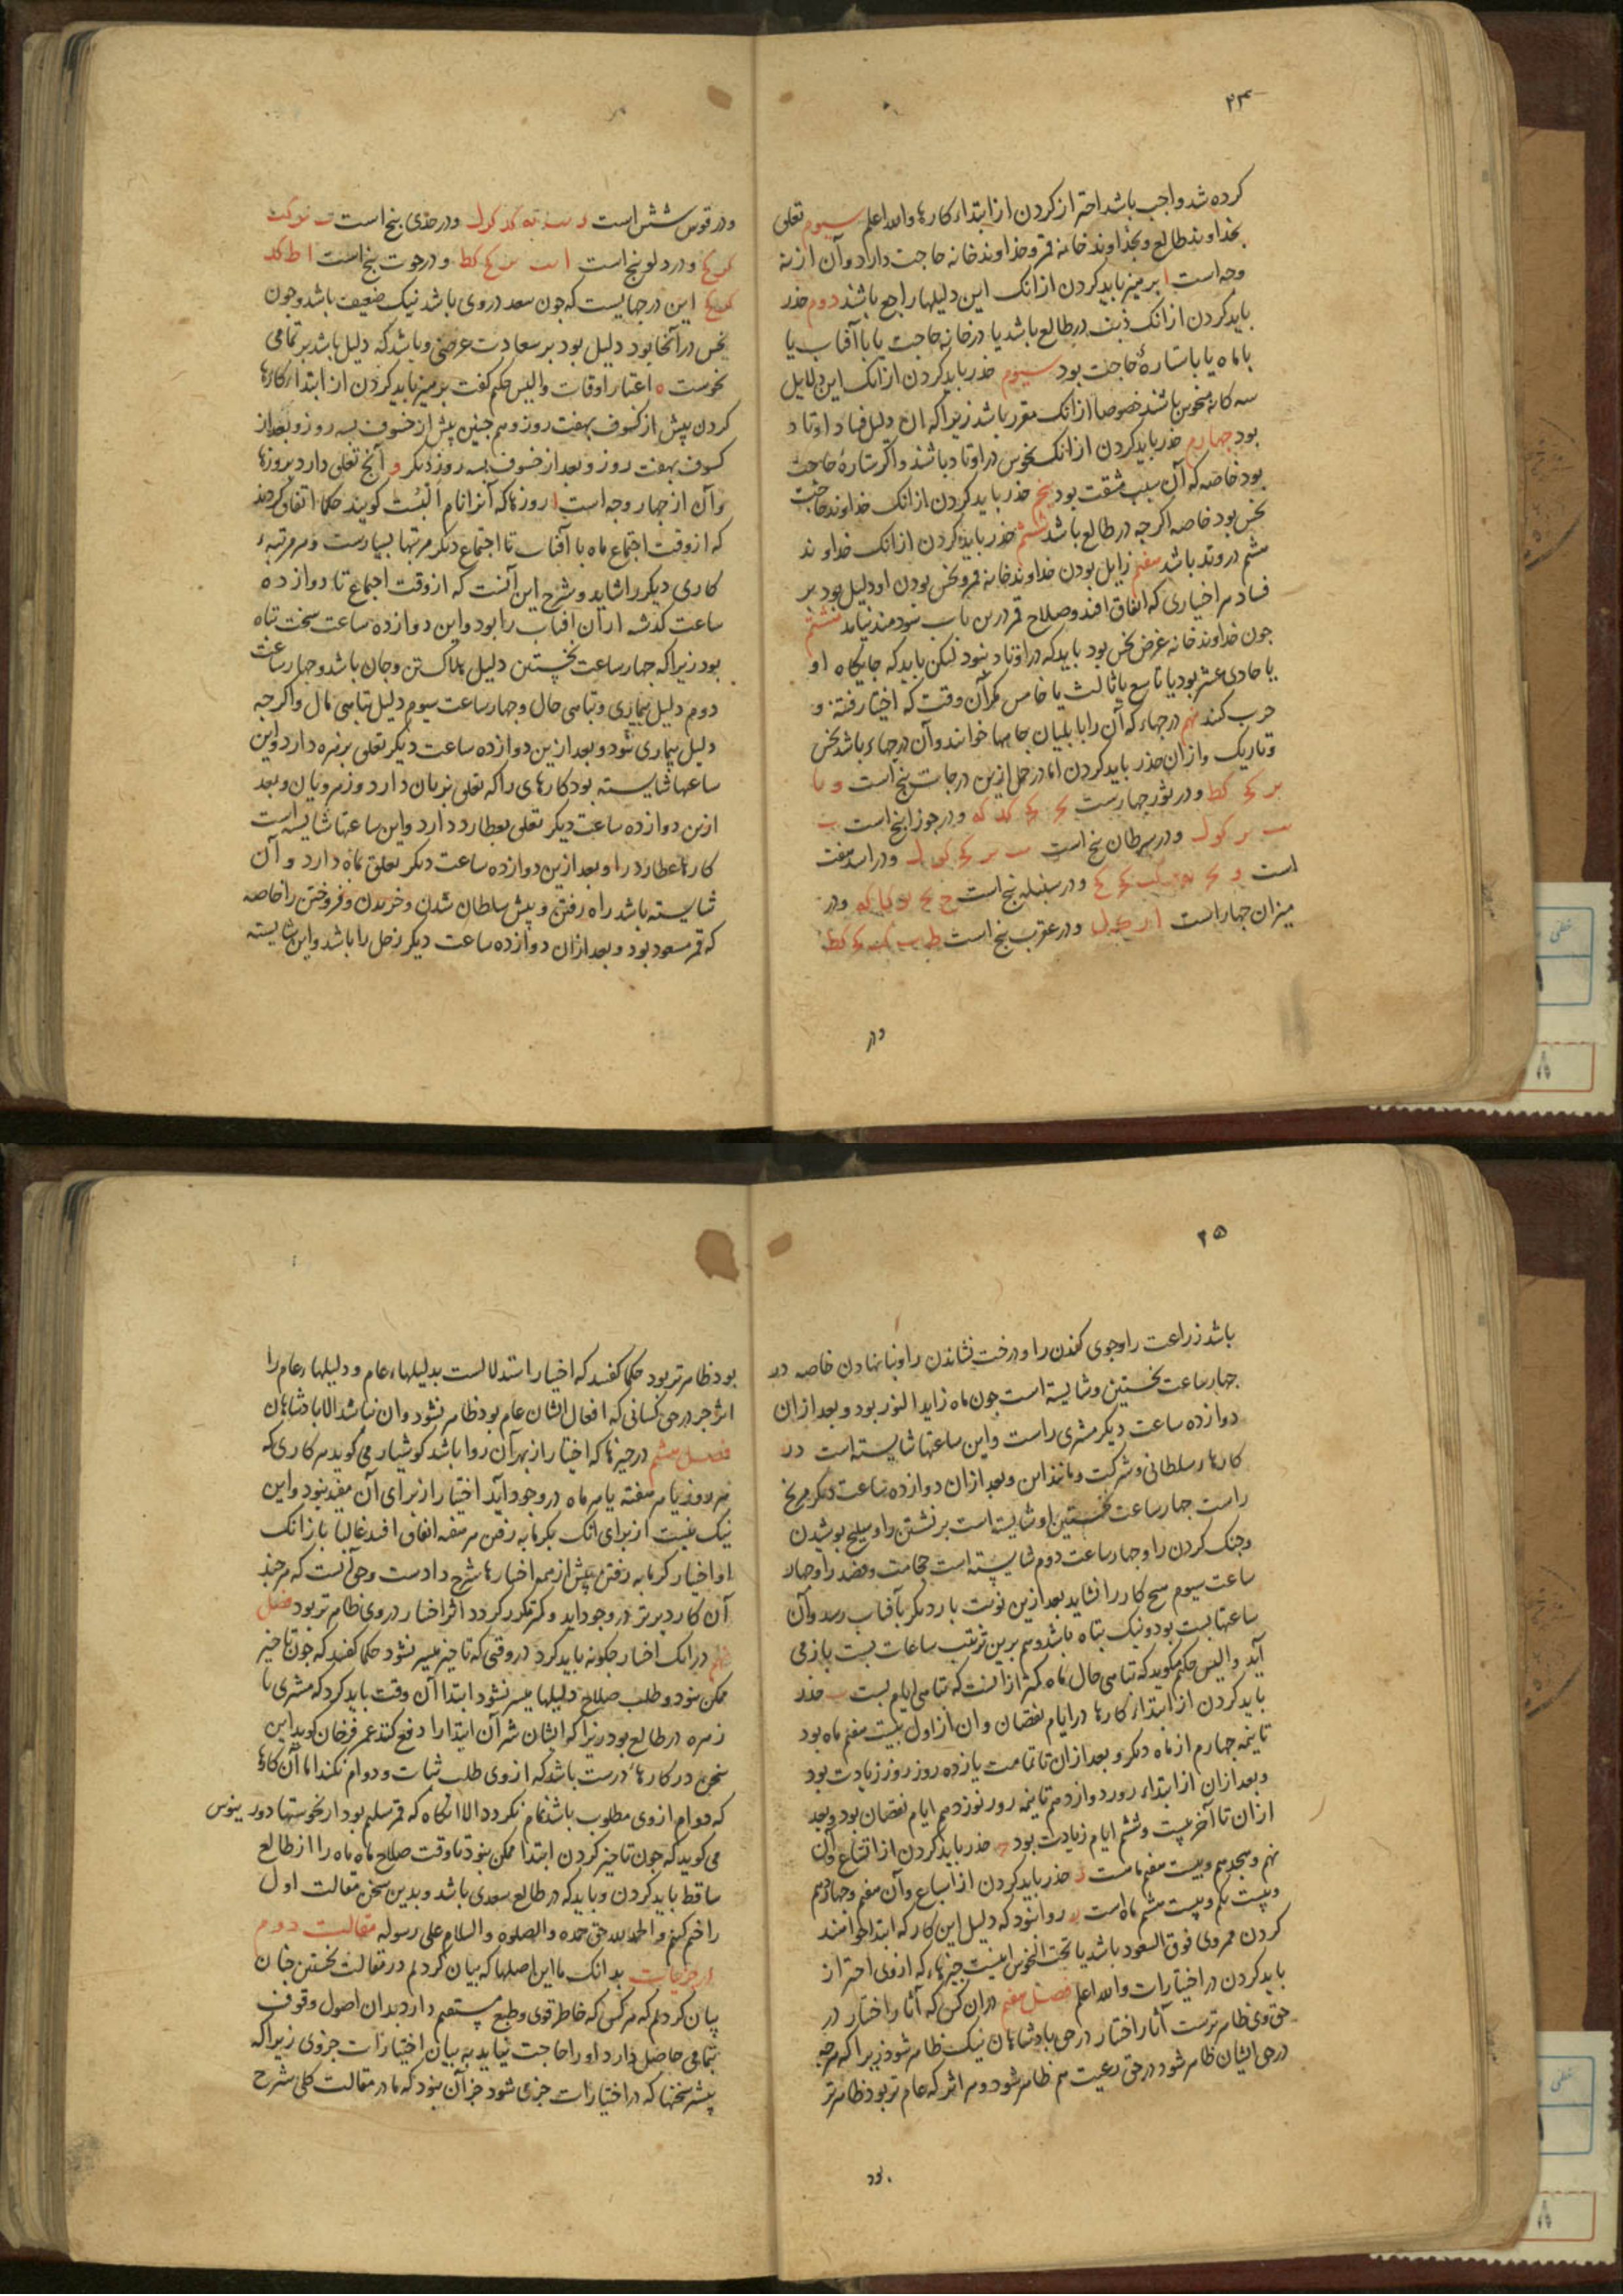 ۲۴
کرده شد واجب باشد احتراز کردن از ابتداء کارها والله اعلم سیوم تعلق
بخداوند طالع و بخداوند خانه قمر و خداوند خانه حاجت دارد و آن از نه
وجه است ا پرهیز باید کردن از انک این دلیلها راجع باشند دوم حذر
باید کردن از انک ذنب در طالع باشد یا در خانه حاجت یا با آفتاب یا
با ماه یا با ستارهٔ حاجت بود سیوم حذر باید کردن از انک این دلایل
سه کانه منحوس باشند خصوصا از انک مقرر باشد زیرا که ان دلیل فساد اوتاد
بود چهارم حذر باید کردن از انک نحوس در اوتاد باشند و اکر ستارهٔ حاجت
بود خاصه که آن سبب مشقت بود پنجم حذر باید کردن از انک خداوند حاجت
نحس بود خاصه اکر چه در طالع باشد ششم حذر باید کردن از انک خداوند
هشتم در وتد باشد هفتم زایل بودن خداوند خانه قمر و نحس بودن او دلیل بود بر
فساد هر اختیاری که اتفاق افتد و صلاح قمر درین باب سودمند نیاید هشتم
چون خداوند خانه غرض نحس بود باید که در اوتاد نبود لیکن باید که جایکاه او
یا حادی عشر بود یا تاسع یا ثالث یا خامس مکر آن وقت که اختیار فتنه و
حرب کنند نهم درجهاء که آن را بابلیان چاهها خوانند و آن درجهاء باشد نحس
و تاریک و از ان حذر باید کردن اما در حمل ازین درجات پنج است
و در ثور چهارست و در جوزا پنج است
و در سرطان پنج است و در اسد هفت
است و در سنبله پنج است و در
میزان چهار است و در عقرب پنج است
در
و در قوس شش است و در جدی پنج است
و در دلو پنج است و در حوت پنج است
این درجهایست که چون سعد در وی باشد نیک ضعیف باشد و چون
نحس در آنجا بود دلیل بود بر سعادت عرضی و باشد که دلیل باشد بر تمامی
نحوست ه اعتبار اوقات والیس حکیم کفت پرهیز باید کردن از ابتداء کارها
کردن پیش از کسوف بهفت روز و هم چنین پیش از خسوف بسه روز و بعد از
کسوف بهفت روز و بعد از خسوف بسه روز دیکر و آنچ تعلق دارد بروزها
و آن از چهار وجه است ا روزها که آنرا نام اَلْبُسْت کویند حکما اتفاق کردند
که از وقت اجتماع ماه با آفتاب تا اجتماع دیکر مرتبها بسیارست و هر مرتبهٔ
کاری دیکر را شاید و شرح این آنست که از وقت اجتماع تا دوازده
ساعت کذشته از آن آفتاب را بود و این دوازده ساعت سخت تباه
بود زیرا که چهار ساعت نخستین دلیل هلاک تن و جان باشد و چهار ساعت
دوم دلیل بیماری و تباهی حال و چهار ساعت سیوم دلیل تباهی مال و اکر چه
دلیل بیماری نبود و بعد ازین دوازده ساعت دیکر تعلق بزهره دارد و این
ساعتها شایسته بود کارهای را که تعلق بزنان دارد و زهرویان و بعد
ازین دوازده ساعت دیکر تعلق بعطارد دارد و این ساعتها شایسته است
کارهاء عطارد را و بعد ازین دوازده ساعت دیکر تعلق بماه دارد و آن
شایسته باشد راه رفتن و پیش سلطان شدن و خریدن و فروختن را خاصه
که قمر مسعود بود و بعد از ان دوازده ساعت دیکر زحل را باشد و این شایسته
۲۵
باشد زراعت را و جوی کندن را و درخت نشاندن را و بنا نهادن خاصه در
چهار ساعت نخستین و شایسته است چون ماه زاید النور بود و بعد از ان
دوازده ساعت دیکر مشتری راست و این ساعتها شایسته است در
کارهاء سلطانی و شرکت و مانند این و بعد از ان دوازده ساعت دیکر مریخ
راست چهار ساعت نخستین او شایسته است بر نشستن را و سلیح پوشیدن
و جنک کردن را و چهار ساعت دوم شایسته است حجامت و فصد را و چهار
ساعت سیوم هیچ کار را نشاید بعد ازین نوبت بار دیکر بآفتاب رسد و آن
ساعتها بست بود و نیک تباه باشد و هم برین ترتیب ساعات بست باز می
آید والیس حکیم میکوید که تباهی حال ماه کمتر از انست که تباهی ایام بست ب حذر
باید کردن از ابتداء کارها در ایام نقصان و ان از اول بیست هفتم ماه بود
تا نیمه چهارم از ماه دیکر و بعد از ان تا تمامت یازده روز روز زیادت بود
و بعد از ان از ابتداء روز دوازدهم تا نیمه روز نوزدهم ایام نقصان بود و بعد
از ان تا آخر بیست و ششم ایام زیادت بود ج حذر باید کردن از اتساع و آن
نهم و هجدهم و بیست هفتم ماست د حذر باید کردن از اسباع و آن هفتم و چهاردهم
و بیست یکم و بیست هشتم ماه است روا نبود که دلیل این کار که ابتدا خواهند
کردن هم وی فوق السعود باشد یا تحت النحوس اینست چیزهاء که از وی احتراز
باید کردن در اختیارات والله اعلم فصل هفتم در ان کس که آثار اختیار در
حق وی ظاهرترست آثار اختیار در حق پادشاهان نیک ظاهر شود زیرا که هر چه
در حق ایشان ظاهر شود در حق رعیت هم ظاهر شود و هر اثر که عام تر بود ظاهر تر
بود
بود ظاهر تر بود حکما کفتند که اختیار استدلالست بدلیلهاء عام و دلیلهاء عام را
اثر جز در حق کسانی که افعال ایشان عام بود ظاهر نشود و ان نباشد الا پادشاهان
فصل هشتم در چیزها که اختیار از بهر آن روا باشد کوشیار می کوید هر کاری که
هر روز یا هر هفته یا هر ماه در وجود آید اختیار از برای آن مفید نبود و این
نیک نیست از برای انک بکرمابه رفتن هر هفته اتفاق افتد غالبا باز انک
او اختیار کرمابه رفتن پیش از همه اختیارها شرح دادست و حق آنست که هر چند
آن کار دیرتر در وجود اید و کمتر مکرر کردد اثر اختیار در وی ظاهر تر بود فصل
نهم در انک اختیار چکونه باید کرد در وقتی که تاخیر میسر نشود حکما کفتند که چون تاخیر
ممکن نبود و طلب صلاح دلیلها میسر نشود ابتدا آن وقت باید کرد که مشتری یا
زهره در طالع بود زیرا که ایشان شر آن ابتدا را دفع کنند عمر فرخان کوید این
سخن در کارهاء درست باشد که از وی طلب ثبات و دوام نکنند اما آن کارها
که دوام از وی مطلوب باشد تمام نکردد الا انکاه که قمر سلیم بود از نحوستها دورینوس
می کوید که چون تاخیر کردن ابتدا ممکن نبود تا وقت صلاح ماه ماه را از طالع
ساقط باید کردن و باید که در طالع سعدی باشد و بدین سخن مقالت اول
را ختم کنیم والحمد لله حق حمده والصلوه والسلام علی رسوله مقالت دوم
در جزئیات بدانک ما این اصلها که بیان کردیم در مقالت نخستین چنان
بیان کردیم که هر کس که خاطر قوی و طبع مستقیم دارد بدان اصول وقوف
بتمامی حاصل دارد او را حاجت نیاید به بیان اختیارات جزوی زیرا که
بیشتر سخنها که در اختیارات جزئ شود جز آن نبود که ما در مقالت کلی شرح